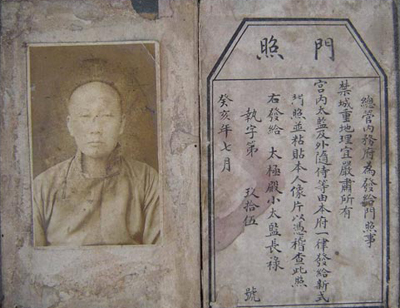 門照
總管內務府為發給門照事
禁城重地理宜嚴肅所有
宮內太監及外隨侍等由本府一律發給新式
門照並粘貼本人像片以憑稽查此照
右發給 太極殿小太監長祿
執字第 玖拾伍 號
癸亥年七月